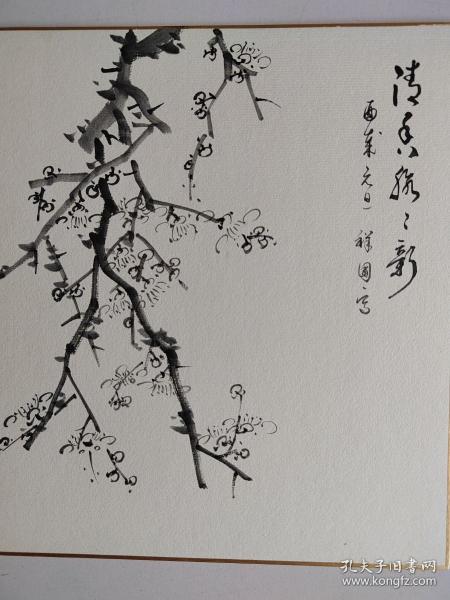 清香脉々新
酉年元旦 祥園写
孔夫子旧书网
www.kongfz.com